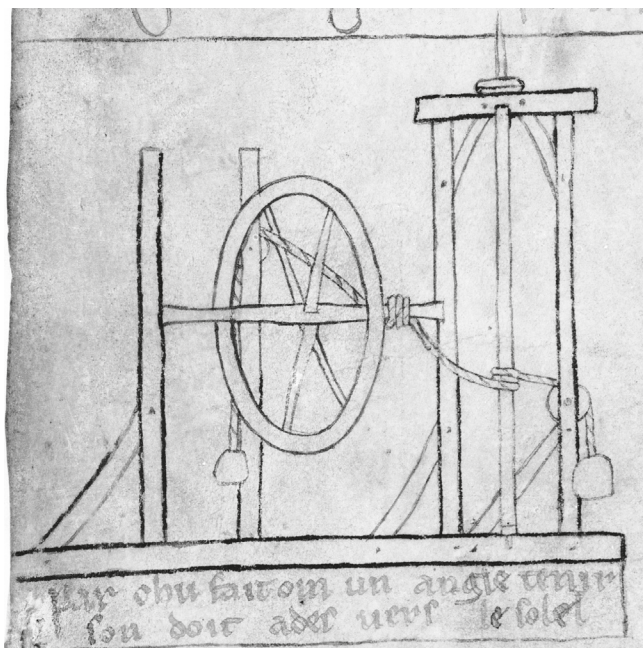 par chu fait om un angle tenir
son doit ades vers le solel